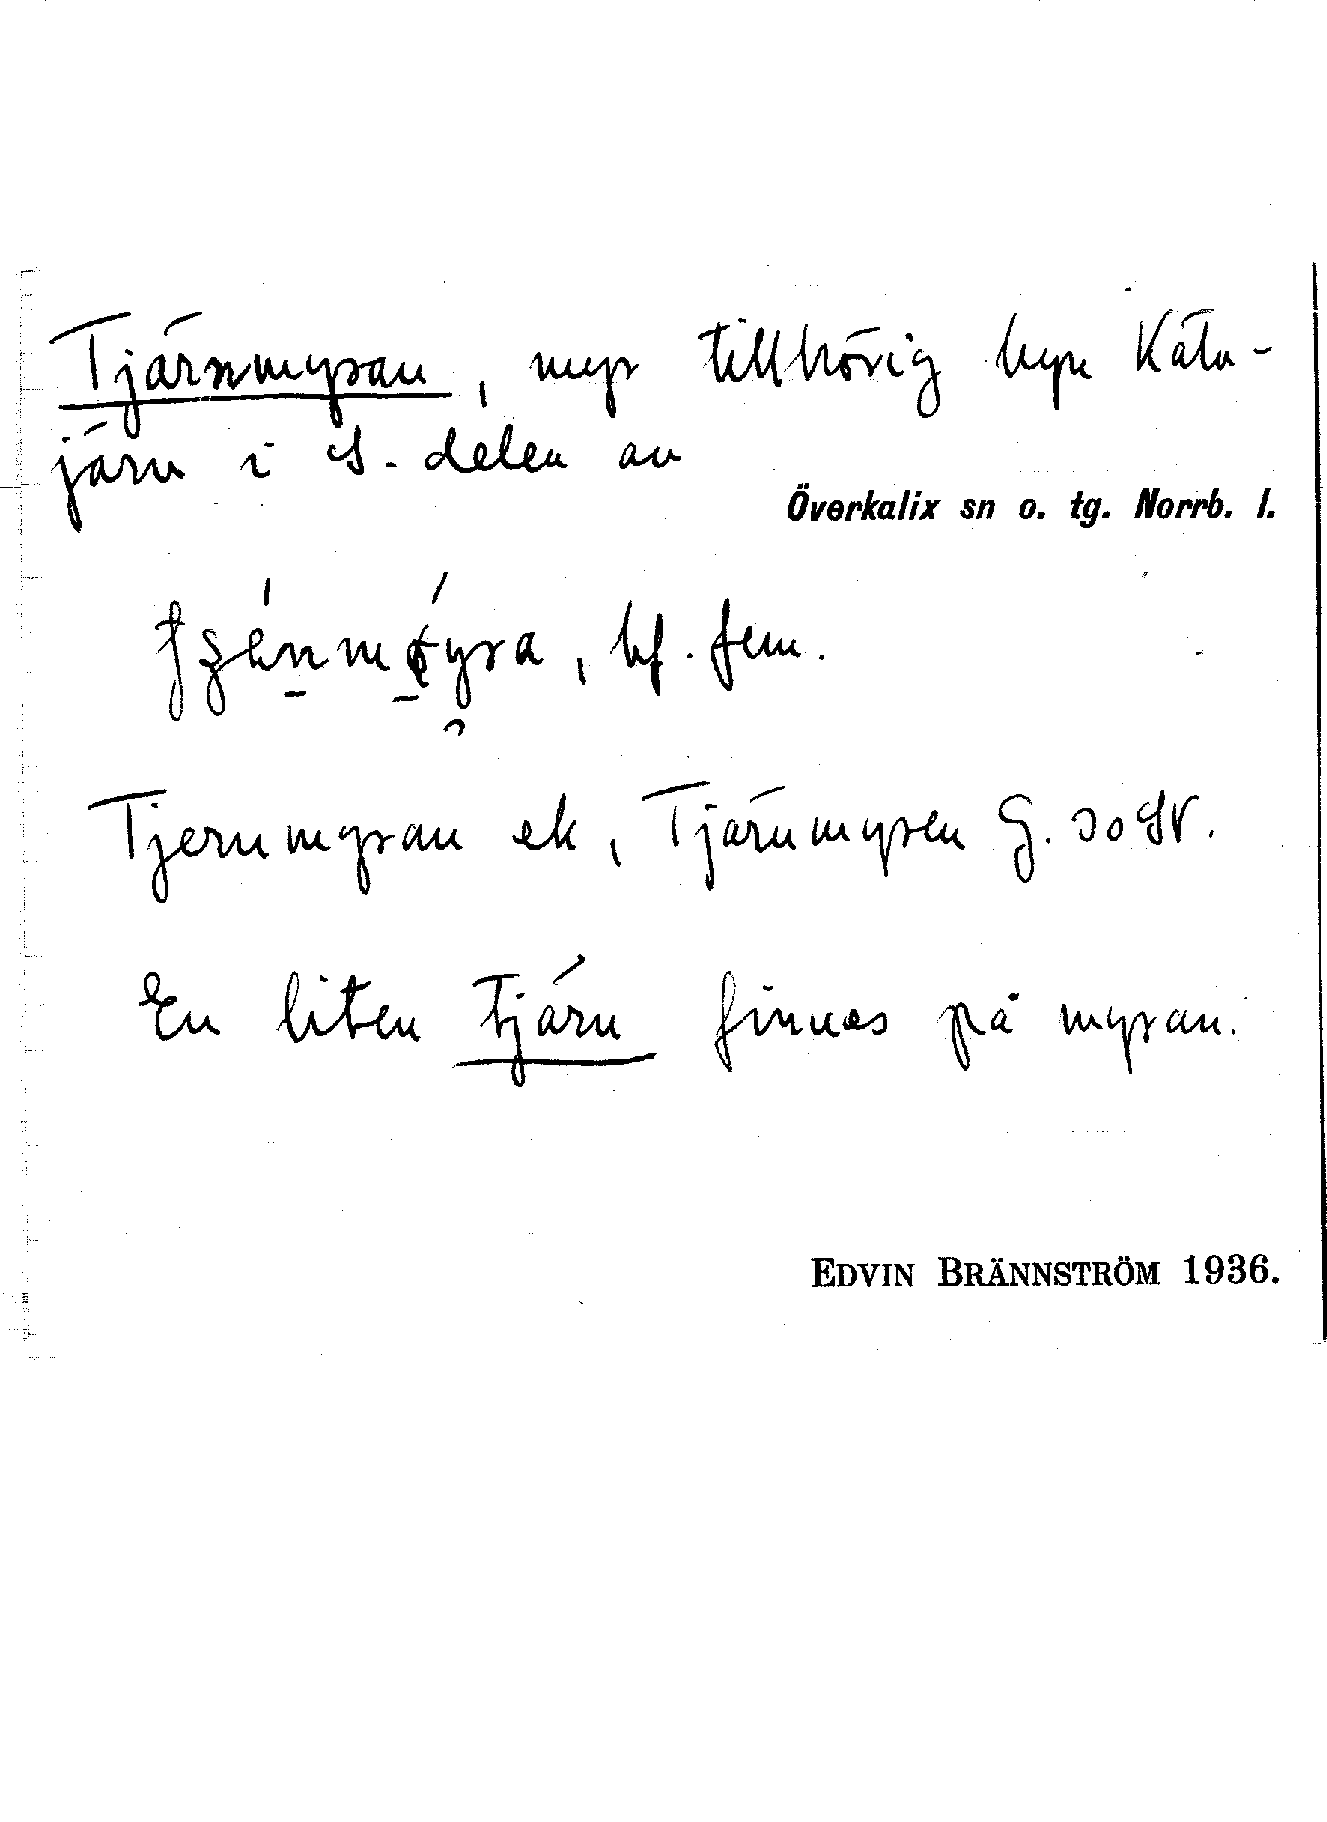 Tjärnmyran, myr tillhörig byn Käta-
järv i S. delen av
Överkalix sn o. tg. Norrb. l.
bf. fem.
Tjernmyran ek, Tjärnmyren G. 30 SV.
En liten tjärn finnes på myran.
EDVIN BRÄNNSTRÖM 1936.